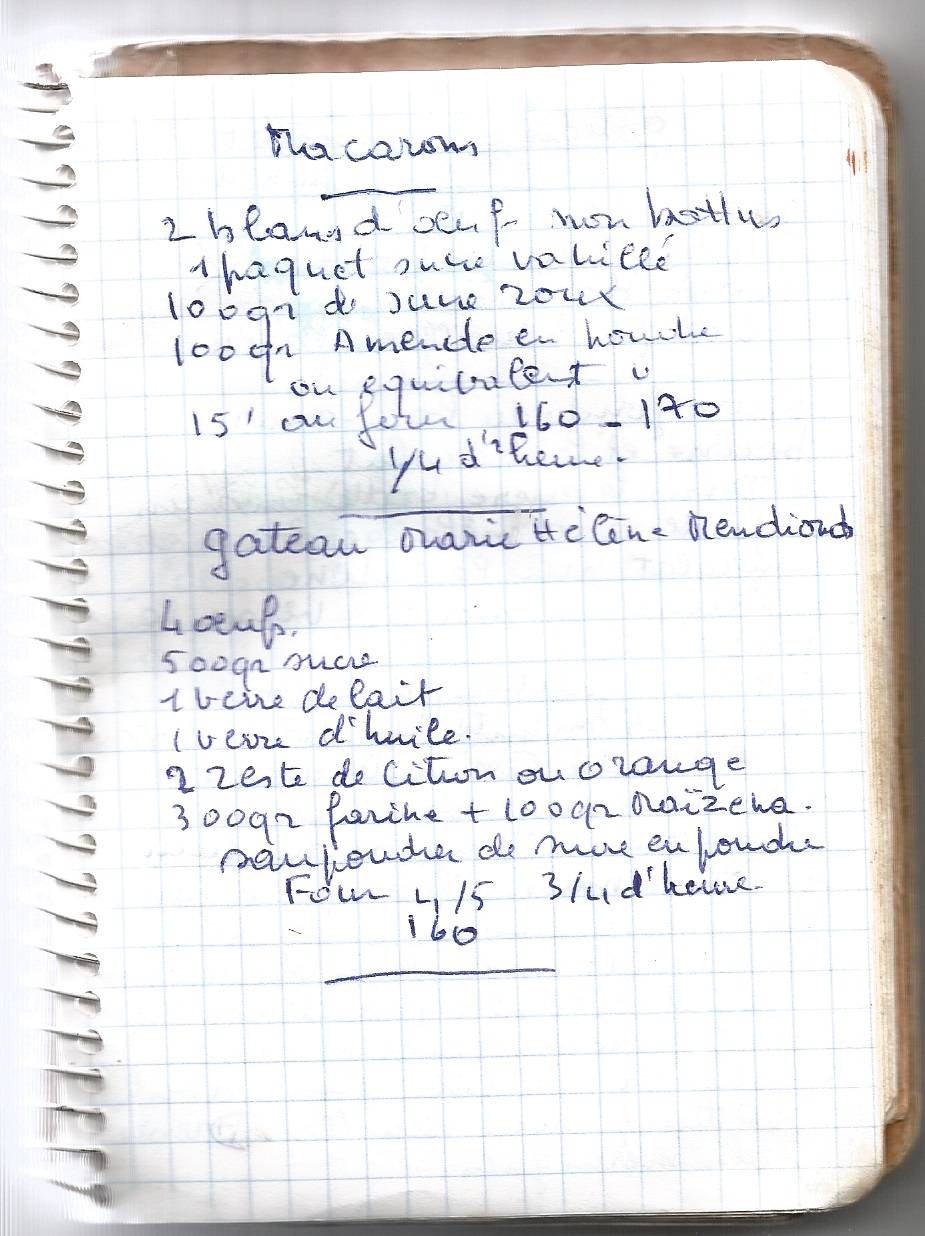 Macarons
2 blancs d'oeuf non battus
1 paquet sucre vanillé
100gr de sucre roux
100gr Amende en poudre
ou equivalent
15' au four 160 - 170
1/4 d'heure.
gateau Marie Hélène
4 oeufs.
500gr sucre
1 verre de lait
1 verre d'huile.
2 zeste de citron ou orange
300gr farine + 100gr Maïzena.
saupoudrer de sucre en poudre
Four 4/5 3/4 d'heure.
160